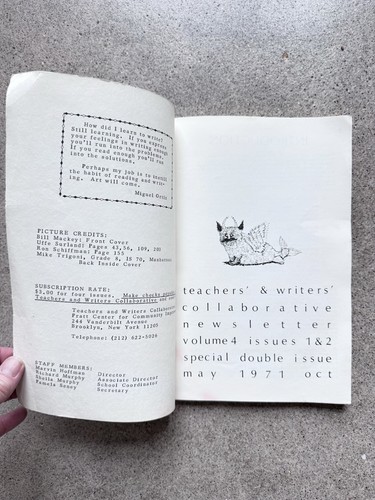 How did I learn to write?
Still learning. If you express
your feelings in writing enough
you'll run into the problems.
If you read enough you'll run
into the solutions.
Perhaps my job is to instill
the habit of reading and writ-
ing. Art will come.
Miguel Ortiz
PICTURE CREDITS:
Bill Mackey: Front Cover
Uffe Surland: Pages 42,56, 109,
Ron Schiffman: Page 155
Mike Trigoni, Grade 8, IS 70, Manhattan:
Back Inside Cover
SUBSCRIPTION RATE:
$3.00 for four issues. Make checks
Teachers and Writers Collaborative and
Teachers and Writers Collaborative
Pratt Center for Community
244 Vanderbilt Avenue
Brooklyn, New York 11205
Telephone: (212) 622-
STAFF MEMBERS:
Marvin Hoffman Director
Richard Murphy Associate Director
Sheila Murphy School Coordinator
Pamela Seney Secretary
teachers' & writers'
collaborative
newsletter
volume 4 issues 1&2
special double issue
may 1971 oct